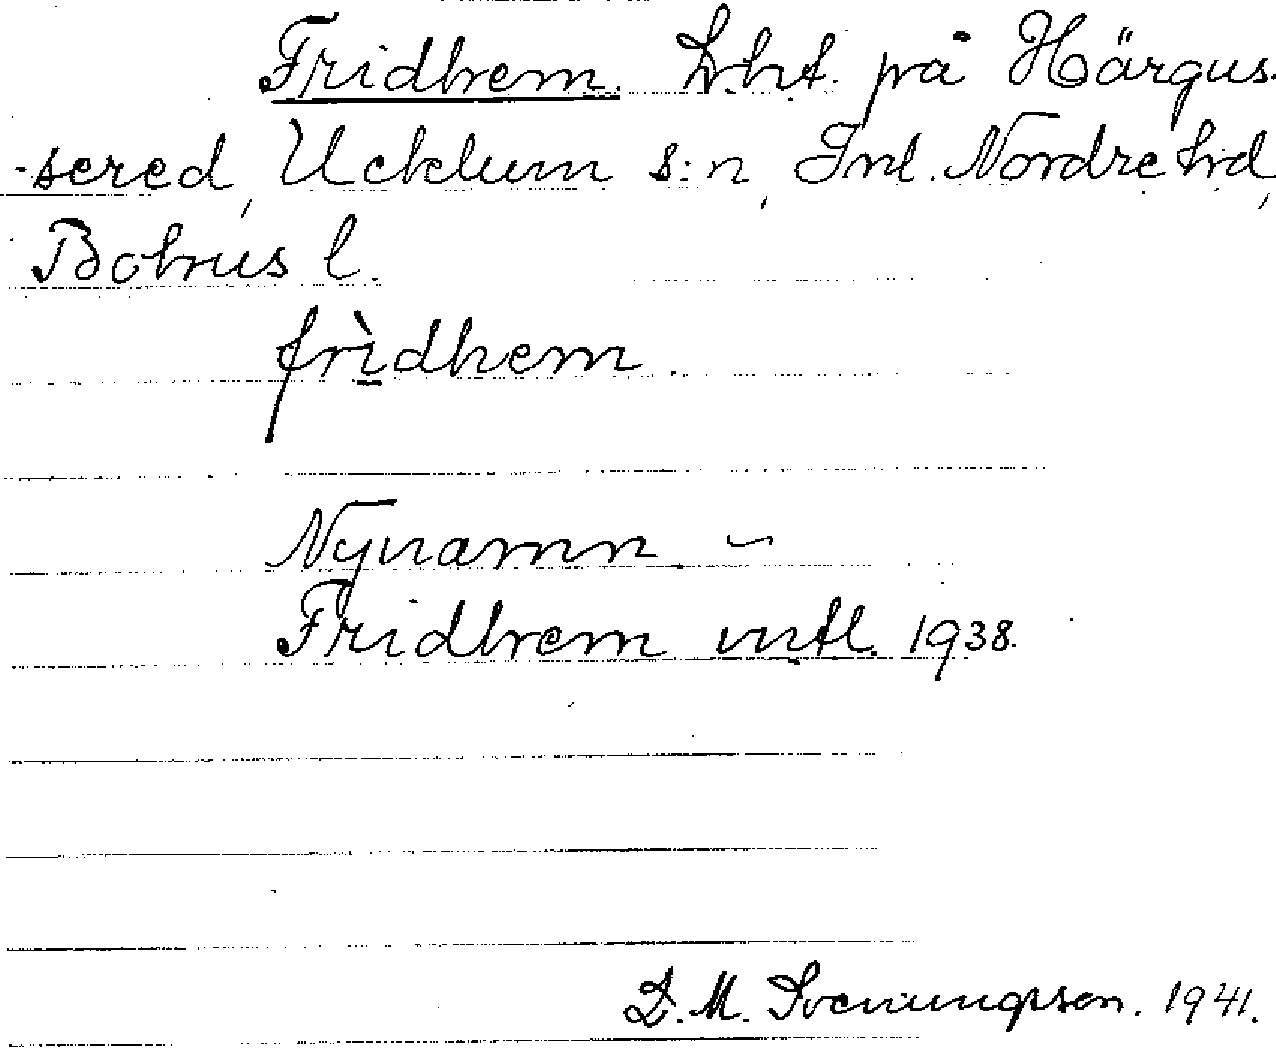 Fridhem. Lht. på Härgus-
-sered, Ucklum s:n, Inl. Nordre hd,
Bohus l.
frìdhem
Nynamn –
Fridhem mtl. 1938.
D. M. Svenungsson. 1941.